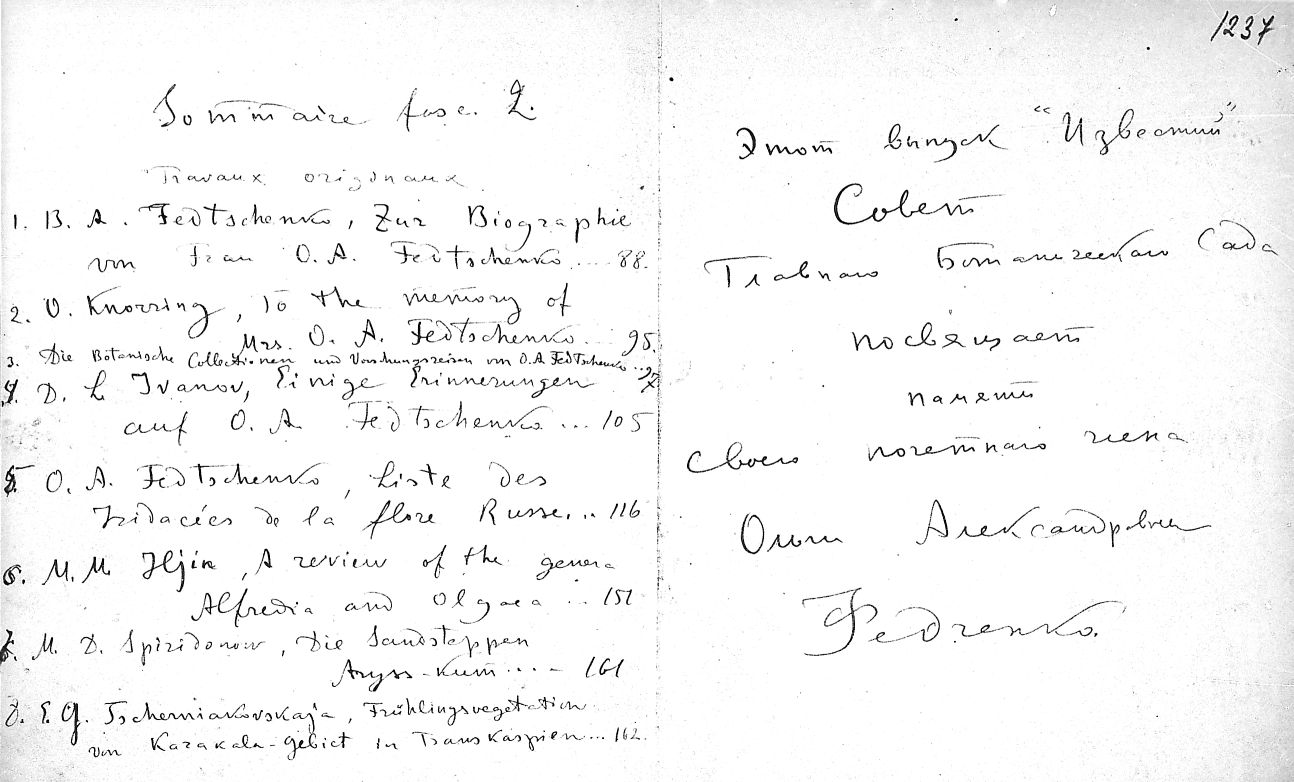 Sommaire fasc. 2.
Travaux originaux
1. B. A. Fedtschenko, Zur Biographie
von Frau O. A. Fedtschenko .... 88.
2. O. Knorring, To the memory of
Mrs. O. A. Fedtschenko... 95.
3. Die Botanische Collectionen und Vorschungsreisen von O. A. Fedtschenko ... 97
4. D. L. Ivanov, Einige Erinnerungen
auf O. A. Fedtschenko ... 105
5. O. A. Fedtschenko, Liste des
Iridacées de la flore Russe... 116
6. M. M. Iljin, A review of the genera
Alfredia and Olgaea ... 151
7. M. D. Spiridonow, Die Sandsteppen
Aryss-Kum .... 161
8. E. G. Tscherniakovskaja, Frühlingsvegetation
von Karakala-Gebiet in Transkaspien... 162.
1237
Этот выпуск "Известий"
Совет
Главнаго Ботаническаго Сада
посвящает
памяти
своего почетнаго члена
Ольги Александровны
Федченко.